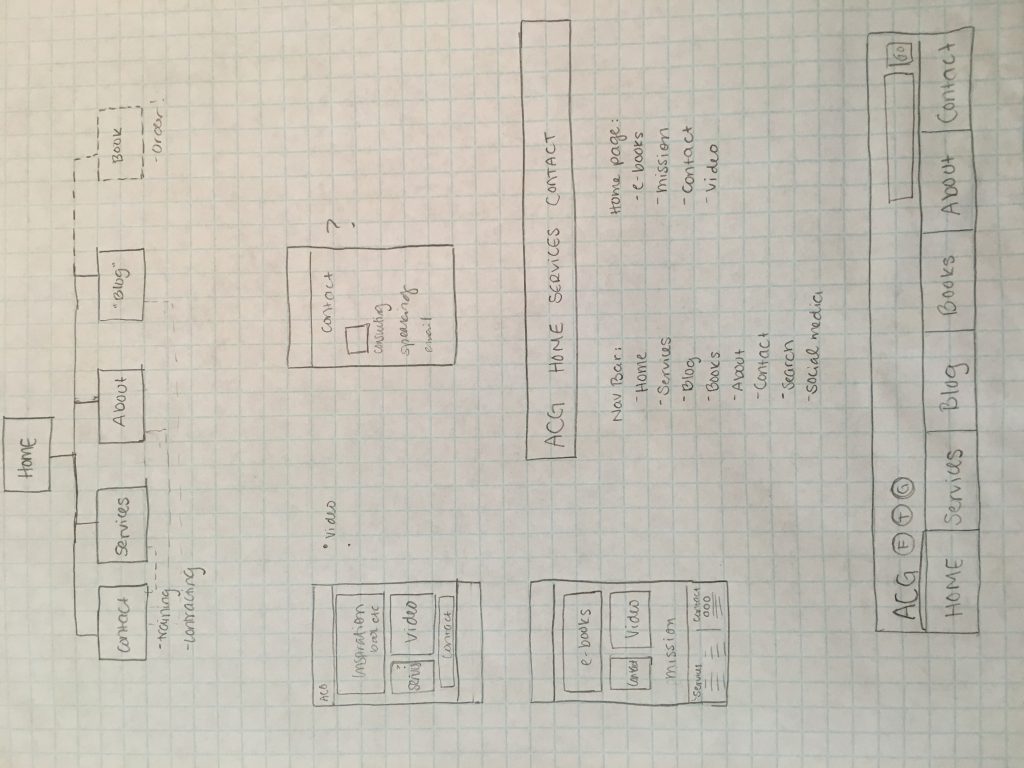 HOME
Contact
Services
About
"Blog"
Book
- training
- contracting
- order!
ACG
Inspiration
book etc
Servi
Video
Contact
• Video
•
Contact
?
consulting
speaking
email
e-books
Contact
Video
mission
Services
Contact
ACG HOME SERVICES CONTACT
Nav Bar:
- Home
- Services
- Blog
- Books
- About
- Contact
- Search
- Social media
Home page:
- e-books
- mission
- Contact
- Video
ACG F T G
GO
HOME Services Blog Books About Contact